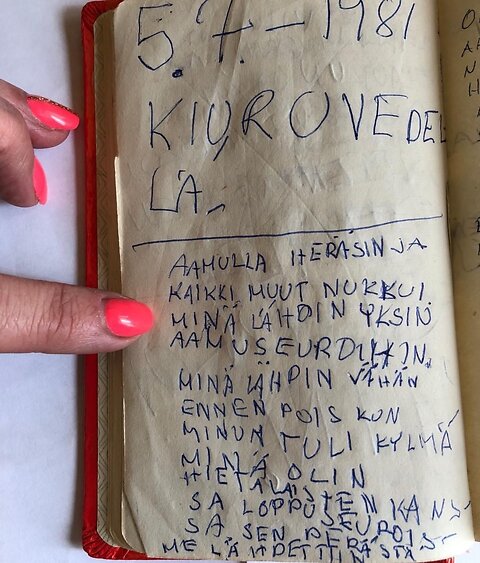 5.7.–1981
KIUROVEDEL
LÄ.
AAMULLA HERÄSIN JA
KAIKKI MUUT NUKKUI.
MINÄ LÄHDIN YKSIN
AAMUSEUROIHIN.
MINÄ LÄHDIN VÄHÄN
ENNEN POIS KUN
MINUN TULI KYLMÄ
MINÄ OLIN
HIETALAISTEN KANS-
SA LOPPUSEUROIS-
SA SEN PERÄSTÄ
ME LÄHDETTIIN